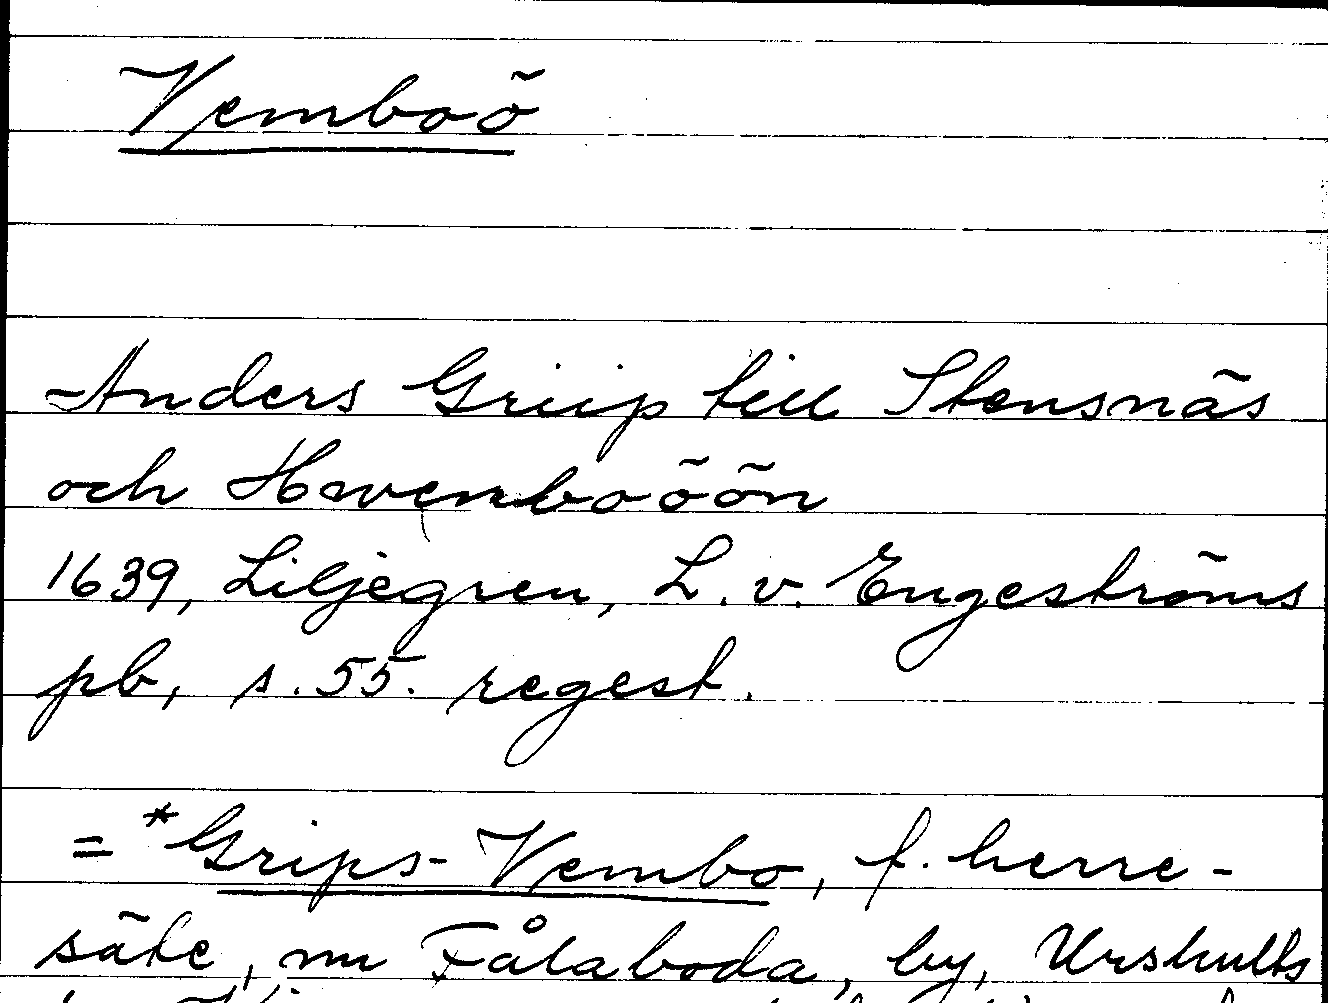 Vemboö
Anders Griip till Stensnäs
och Hwemboöön
1639, Liljegren, L. v. Engeströms
pb, s. 55. regest.
= *Grips-Vembo, f. herre-
säte, nu Fålaboda, by, Urshults